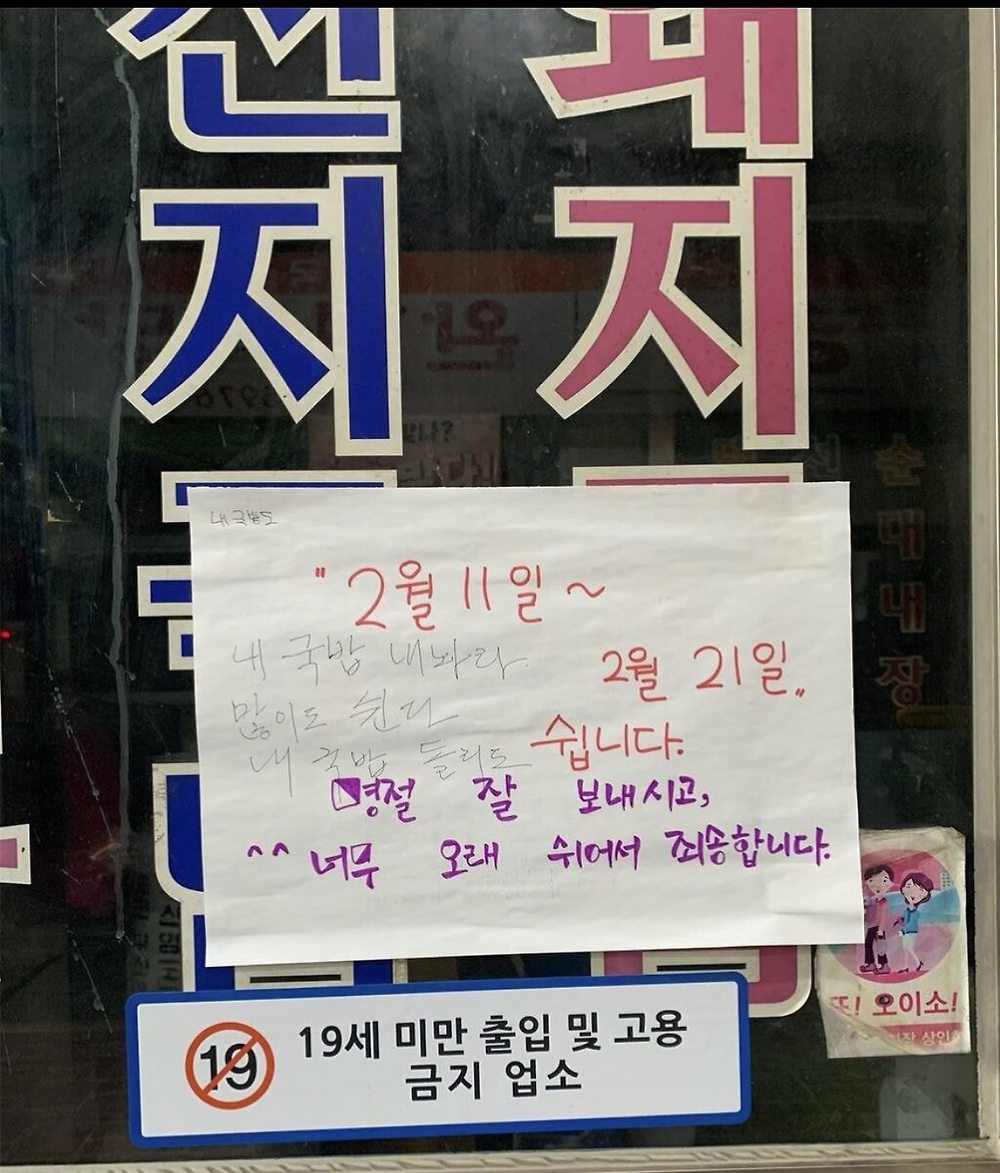 전 돼
지 지
내 국밥도
"2월 11일 ~
2월 21일"
쉽니다.
내 국밥 내놔라
많이도 쉰다
내 국밥 돌리도
명절 잘 보내시고,
^^ 너무 오래 쉬어서 죄송합니다.
순
대
내
장
또! 오이소!
19 19세 미만 출입 및 고용
금지 업소